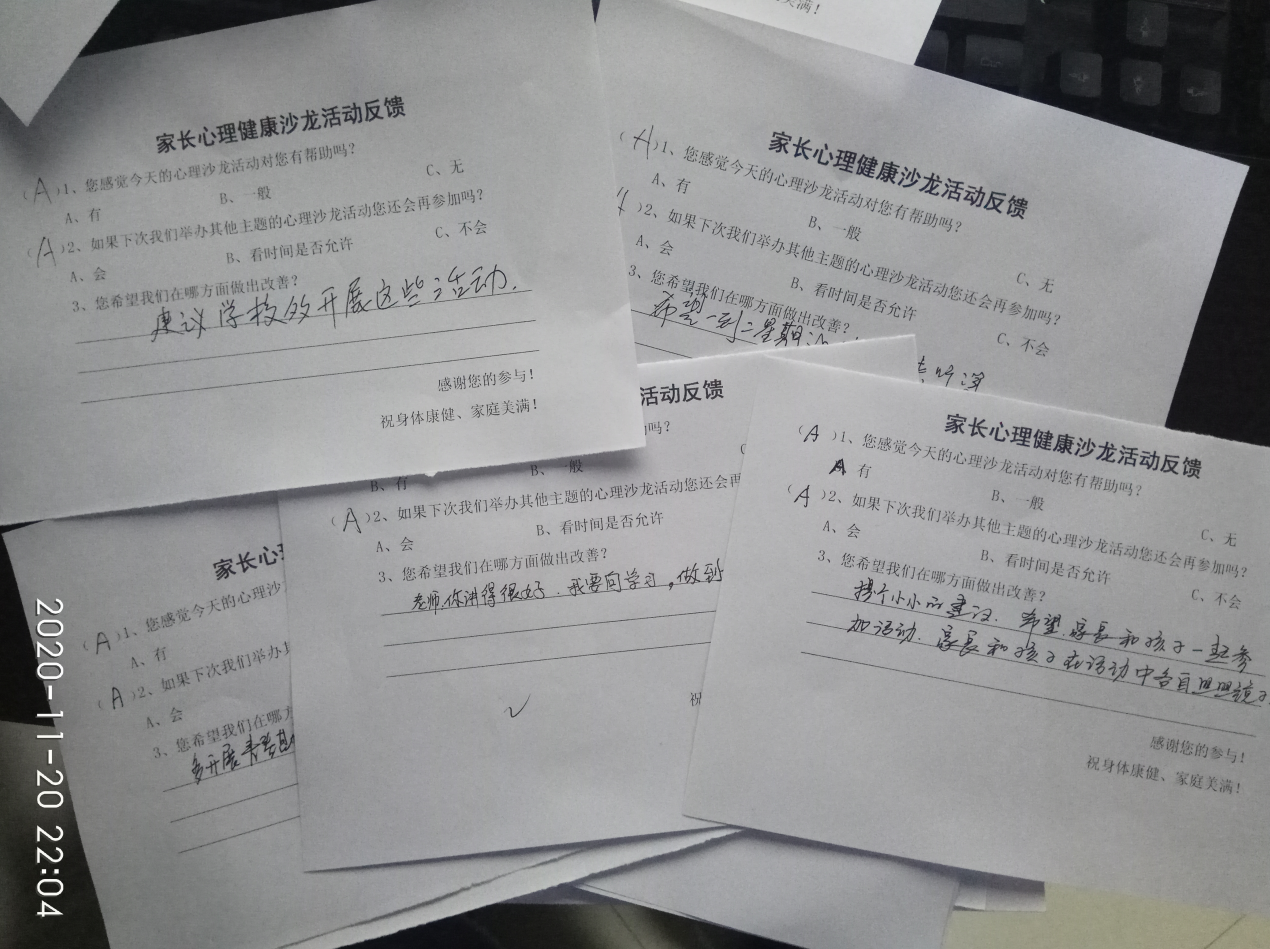 美满！
家长心理健康沙龙活动反馈
（A）1、您感觉今天的心理沙龙活动对您有帮助吗？
A、有 B、一般 C、无
（A）2、如果下次我们举办其他主题的心理沙龙活动您还会再参加吗？
A、会 B、看时间是否允许 C、不会
3、您希望我们在哪方面做出改善？
建议学校多开展这些活动.
感谢您的参与！
祝身体康健、家庭美满！
家长心理健康沙龙活动反馈
（A）1、您感觉今天的心理沙龙活动对您有帮助吗？
A、有 B、一般 C、无
）2、如果下次我们举办其他主题的心理沙龙活动您还会再参加吗？
A、会 B、看时间是否允许 C、不会
3、您希望我们在哪方面做出改善？
希望一到二星期
活动反馈
吗？
B、有 B、一般
（A）2、如果下次我们举办其他主题的心理沙龙活动您还会再
A、会 B、看时间是否允许
3、您希望我们在哪方面做出改善？
老师.你讲得很好.我要向学习，做到
祝
家长心理健康沙龙活动反馈
（A）1、您感觉今天的心理沙龙活动对您有帮助吗？
A 有 B、一般 C、无
（A）2、如果下次我们举办其他主题的心理沙龙活动您还会再参加吗？
A、会 B、看时间是否允许 C、不会
3、您希望我们在哪方面做出改善？
提个小小的建议.希望.家长和孩子一起参
加活动.家长和孩子在活动中各自照照镜子
感谢您的参与！
祝身体康健、家庭美满！
家长心
（A）1、您感觉今天的心理沙
A、有
（A）2、如果下次我们举办
A、会
3、您希望我们在哪方
多开展
2020-11-20 22:04